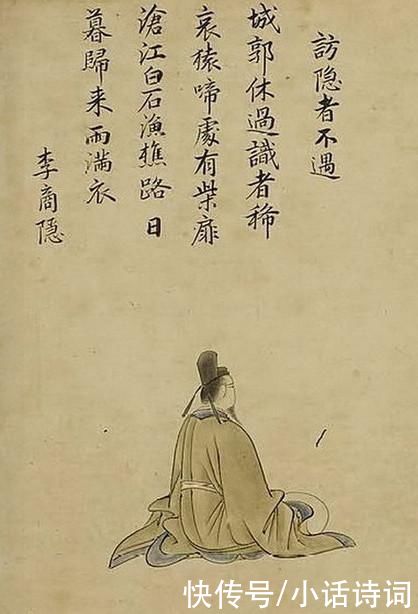 訪隐者不遇
城郭休過識者稀
哀猿啼處有柴扉
滄江白石漁樵路日
暮歸来雨滿衣
李商隱
快传号/小话诗词